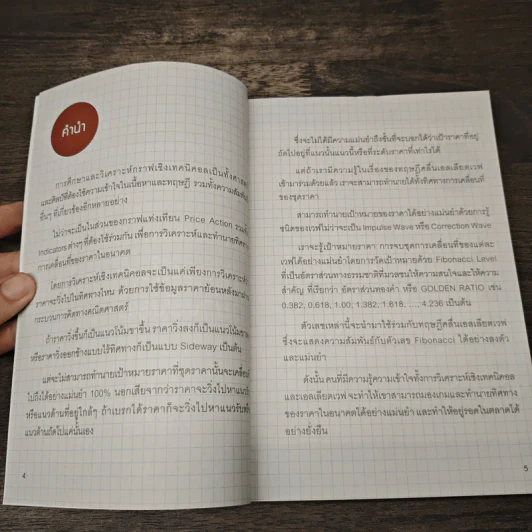 คำนำ
การศึกษาและวิเคราะห์กราฟเชิงเทคนิคอลเป็นทั้งศาสตร์
และศิลป์ที่ต้องใช้ความเข้าใจในเนื้อหาและทฤษฎี รวมทั้งความสัมพันธ์
อื่นๆ ที่เกี่ยวข้องอีกหลายอย่าง
ไม่ว่าจะเป็นในส่วนของกราฟแท่งเทียน Price Action รวมทั้ง
Indicatorsต่างๆ ที่ต้องใช้ร่วมกัน เพื่อการวิเคราะห์และทำนายทิศทาง
การเคลื่อนที่ของราคาในอนาคต
โดยการวิเคราะห์เชิงเทคนิคอลจะเป็นแค่เพียงการวิเคราะห์ว่า
ราคาจะวิ่งไปในทิศทางไหน ด้วยการใช้ข้อมูลราคาย้อนหลังมาผ่าน
กระบวนการคิดทางคณิตศาสตร์
ถ้าราคาวิ่งขึ้นก็เป็นแนวโน้มขาขึ้น ราคาวิ่งลงก็เป็นแนวโน้มขาลง
หรือราคาวิ่งออกข้างแบบไร้ทิศทางก็เป็นแบบ Sideway เป็นต้น
แต่จะไม่สามารถทำนายเป้าหมายราคาที่ชุดราคานั้นจะเคลื่อนที่
ไปถึงได้อย่างแม่นยำ 100% นอกเสียจากว่าราคาจะวิ่งไปหาแนวรับ
หรือแนวต้านที่อยู่ใกล้ๆ ถ้าเบรกได้ราคาก็จะวิ่งไปหาแนวรับหรือ
แนวต้านถัดไปแค่นั้นเอง
4
ซึ่งจะไม่ได้มีความแม่นยำถึงขั้นที่จะบอกได้ว่าเป้าราคาที่อยู่
ถัดไปอยู่ที่แนวนั้นแนวนี้หรือที่ระดับราคาที่เท่าไรได้
แต่ถ้าเรามีความรู้ในเรื่องของทฤษฎีคลื่นเอลเลียตเวฟ
เข้ามาร่วมด้วยแล้ว เราจะสามารถทำนายได้ทั้งทิศทางการเคลื่อนที่
ของชุดราคา
สามารถทำนายเป้าหมายของราคาได้อย่างแม่นยำด้วยการรู้
ชนิดของเวฟไม่ว่าจะเป็น Impulse Wave หรือ Correction Wave
เราจะรู้เป้าหมายราคา การจบชุดการเคลื่อนที่ของแต่ละ
เวฟได้อย่างแม่นยำโดยการวัดเป้าหมายด้วย Fibonacci Level
ที่เป็นอัตราส่วนทางธรรมชาติที่มวลชนให้ความสนใจและให้ความ
สำคัญ ที่เรียกว่า อัตราส่วนทองคำ หรือ GOLDEN RATIO เช่น
0.382, 0.618, 1.00, 1.382, 1.618, ..., 4.236 เป็นต้น
ตัวเลขเหล่านี้จะนำมาใช้ร่วมกับทฤษฎีคลื่นเอลเลียตเวฟ
ซึ่งจะแสดงความสัมพันธ์กับตัวเลข Fibonacci ได้อย่างลงตัว
และแม่นยำ
ดังนั้น คนที่มีความรู้ความเข้าใจทั้งการวิเคราะห์เชิงเทคนิคอล
และเอลเลียตเวฟ จะทำให้เขาสามารถมองเกมและทำนายทิศทาง
ของราคาในอนาคตได้อย่างแม่นยำ และทำให้อยู่รอดในตลาดได้
อย่างยั่งยืน
5